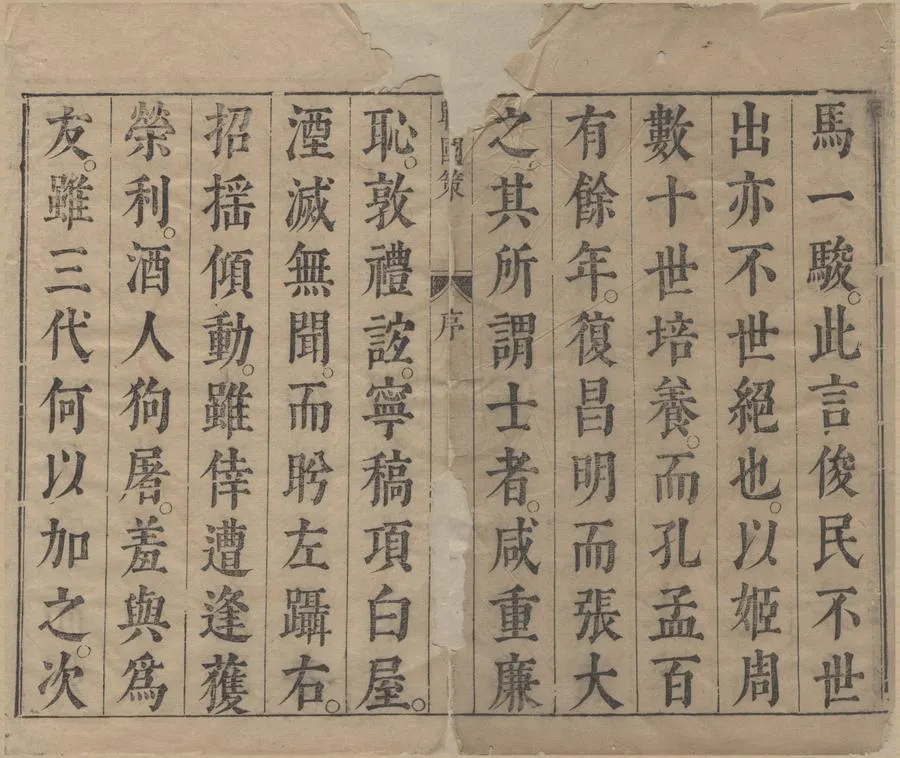 馬一駿。此言俊民不世
出亦不世絕也。以姬周
數十世培養。而孔孟百
有餘年。復昌明而張大
之。其所謂士者。咸重廉
國策 序
恥。敦禮誼。寧稿項白屋。
湮滅無聞。而盻左躡右。
招揺傾動。雖倖遭逢獲
榮利。酒人狗屠。羞與爲
友。雖三代何以加之。次